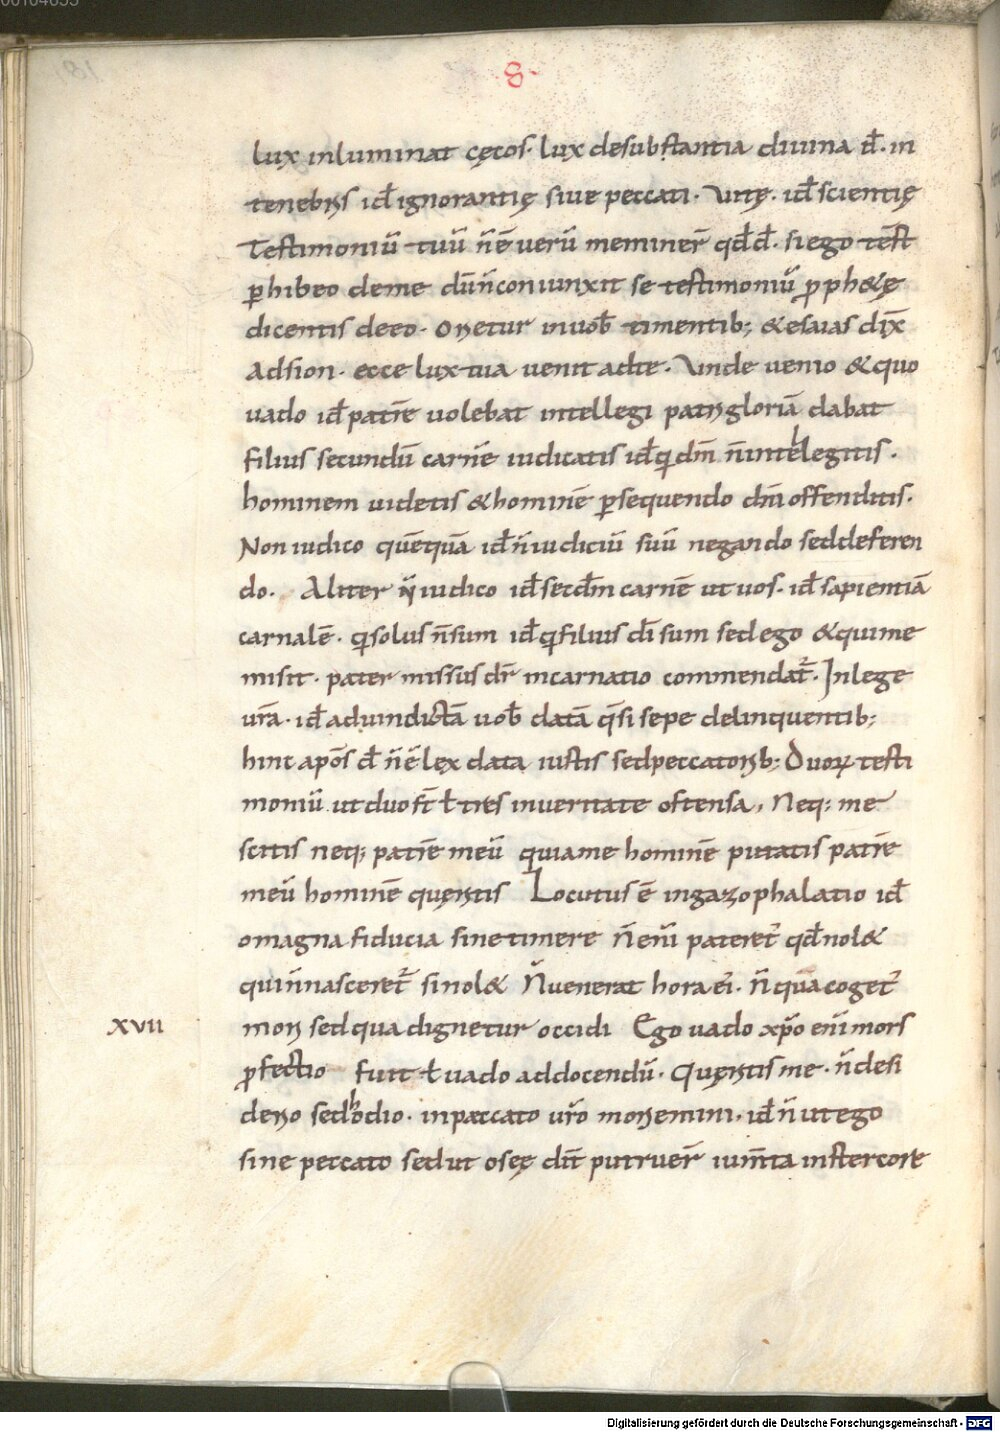 8·
lux inluminat cęcos· lux desubstantia diuina d̄· in
tenebris id̄ ignorantię siue peccati· Vitę· id̄ scientię
Testimoniū tuū n̄ ē uerū meminer̄ qd̄ d̄· si ego test̄
ꝑhibeo deme dū n̄ coniunxit se testimoniū ꝓph&ę
dicentis deeo· Orietur inuob̄ timentib; & esaias dix̄
Adsion· ecce lux tua uenit adte· Vnde uenio & quo
uado id̄ patrē uolebat intellegi patri gloriā dabat
filius secundū carnē iudicatis id̄ qi dm̄ n̄ intellegitis·
hominem uidetis & hominē ꝑsequendo dm̄ offenditis·
Non iudico quēquā id̄ n̄ iudiciū suū negando sed deferen
do· Aliter n̄ iudico id̄ secdm̄ carnē ut uos· id̄ sapientiā
carnalē· qi solus n̄ sum id̄ qi filius dī sum sed ego & qui me
misit· pater missus dr̄ incarnatio commendat̄· In lege
ur̄a· id̄ aduindictā uob̄ datā qsi sepe delinquentib;
hinc apos̄ d̄ n̄ ē lex data iustis sed peccatorib; Duoꝝ testi
moniū ut duo st̄ ł tres inueritate ostensa, Neq; me
scitis neq; patrē meū quia me hominē putatis patrē
meū hominē queritis Locutus ē ingazophalatio id̄
omagna fiducia sine timere n̄ enī pateret̄ qd̄ nol&
qui n̄ nasceret̄ si nol& N̄ uenerat hora eī· n̄ qua coget̄
XVII
mori sed qua dignetur occidi Ego uado xp̄o enī mors
ꝓfectio fuit ł uado addocendū· Queritis me· n̄ desi
derio sed hodio· inpeccato ur̄o moriemini· id̄ n̄ ut ego
sine peccato sed ut oseę dit̄ putruer̄ ium̄ta instercore
Digitalisierung gefördert durch die Deutsche Forschungsgemeinschaft - DFG